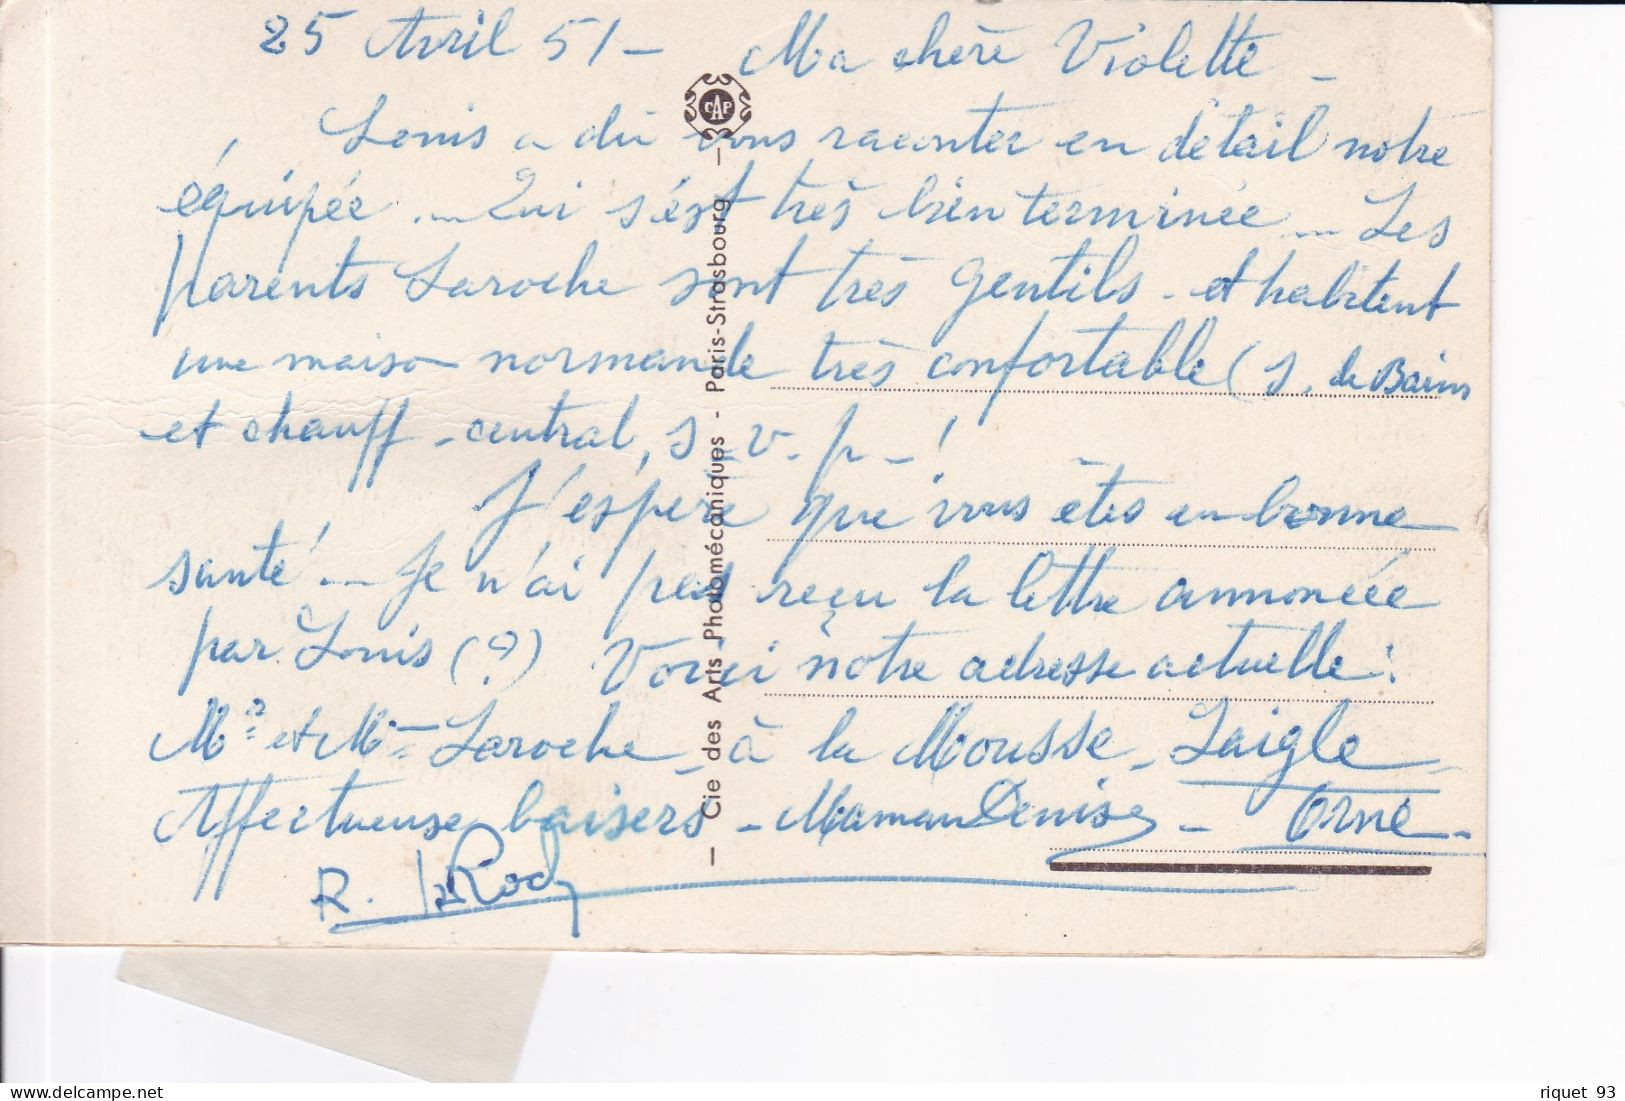 25 Avril 51 — Ma chère Violette —
Louis a dû vous raconter en détail notre
équipée ... Qui s'est très bien terminée ... Les
parents Laroche sont très gentils - et habitent
une maison normande très confortable (S. de Bains
et chauff - central, s - v - p - !
J'espère que vous êtes en bonne
santé ! ... Je n'ai pas reçu la lettre annoncée
par Louis (?) Voici notre adresse actuelle :
Mr et Mme Laroche - à la Mousse - Laigle -
Affectueuse baisers - Maman Denise - Orne -
R. LaRoch
CAP
— Cie des Arts Photomécaniques - Paris-Strasbourg —
riquet 93